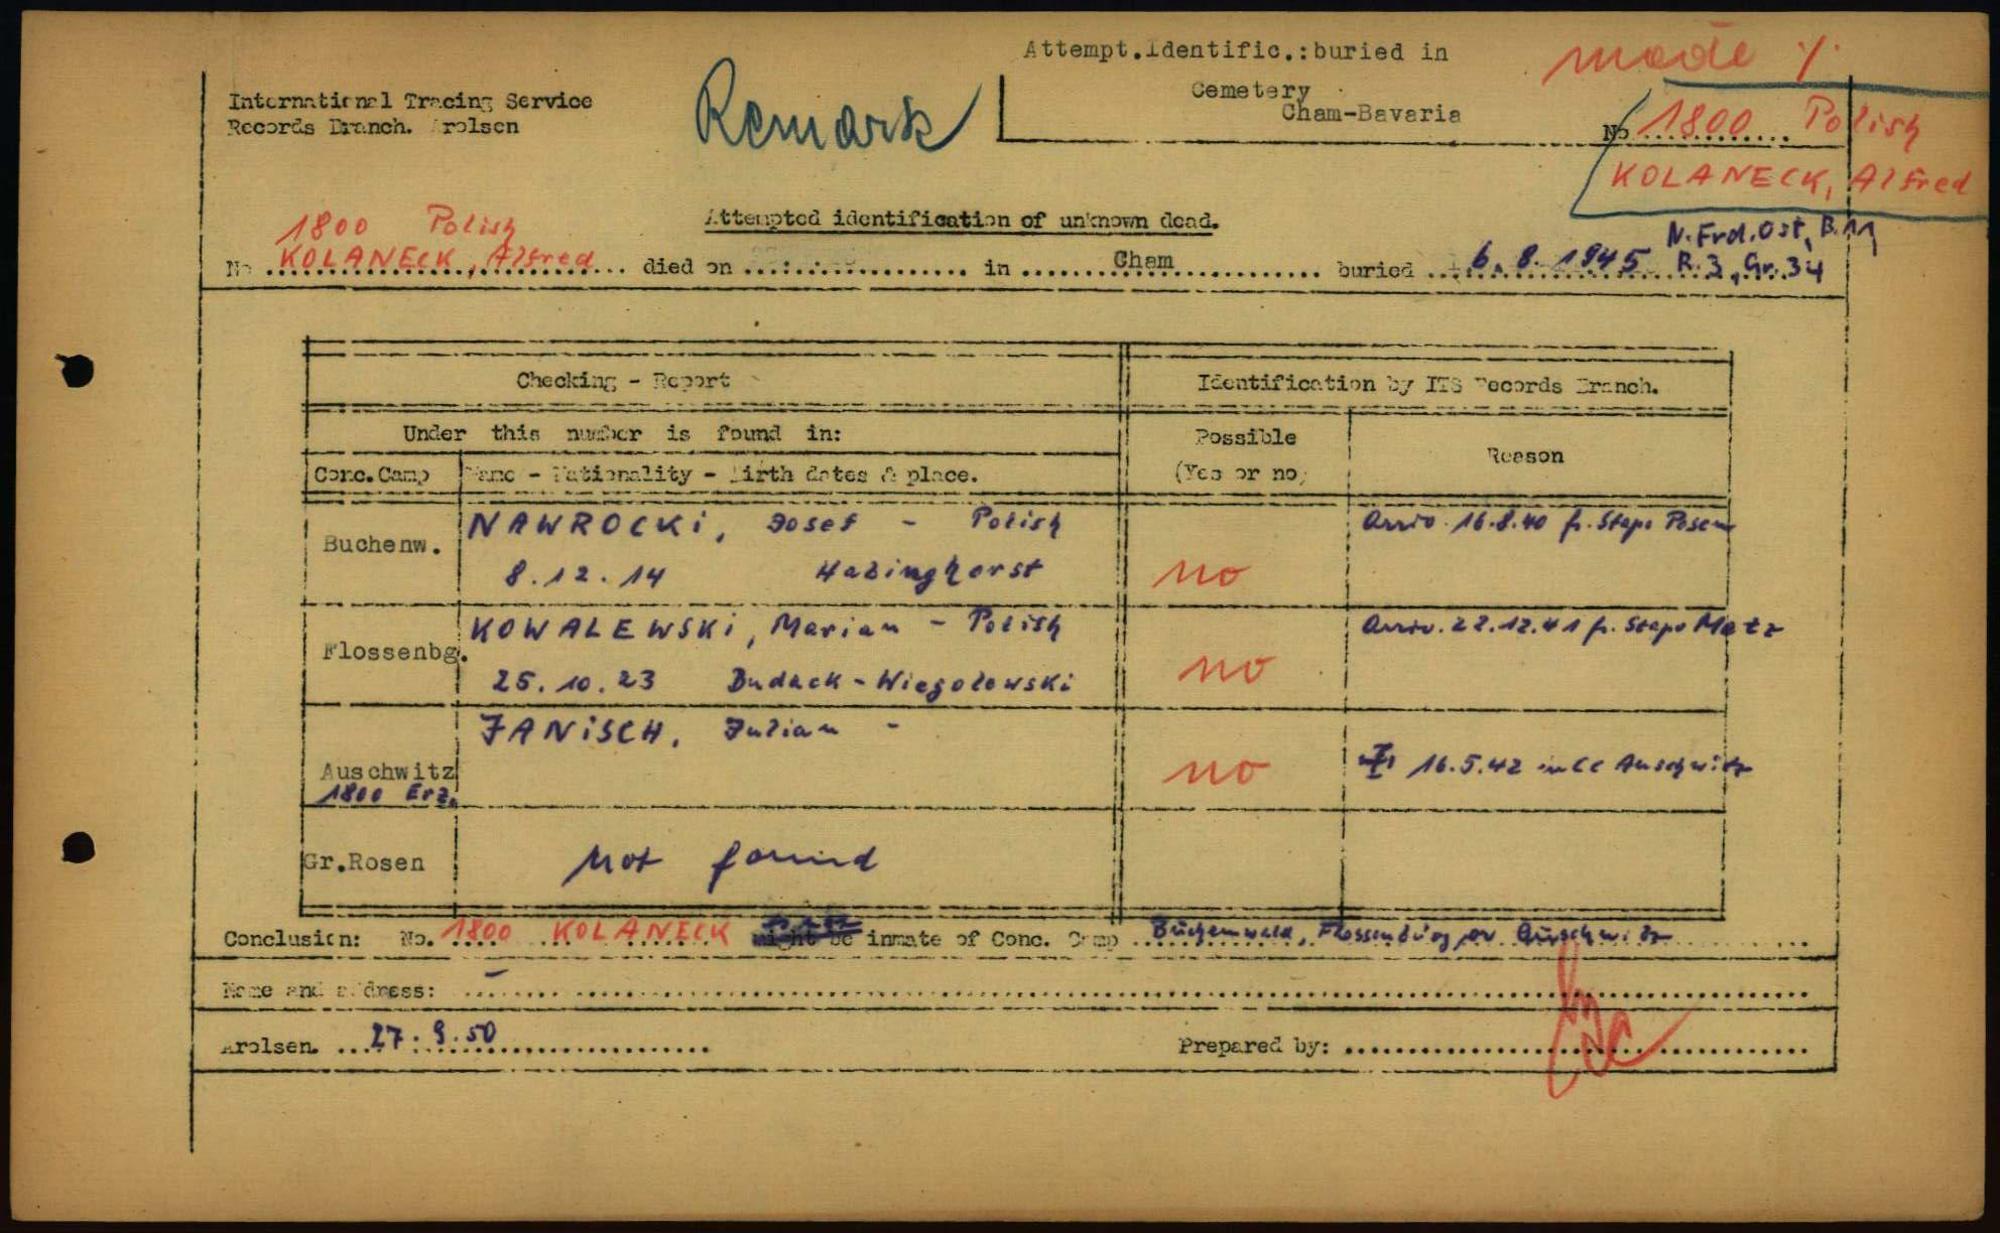 Attempt.Identific.:buried in
made %
International Tracing Service
Remark
Cemetery
Cham-Bavaria
Records Branch. Arolsen
No 1800 Polish
KOLANECK, Alfred
Attempted identification of unknown dead.
1800 Polish
N. Frd. Ost, B.11
No KOLANECK, Alfred died on in Cham buried 6. 8. 1945 R. 3, Gr. 34
Checking - Report
Identification by ITS Records Branch.
Under this number is found in:
Possible
(Yes or no)
Reason
Conc.Camp
Name - Nationality - Birth dates & place.
Buchenw.
NAWROCKi, Josef - Polish
8. 12. 14 Habinghorst
no
Arriv. 16.8.40 fr. Stapo Posen
Flossenbg.
KOWALEWSKi, Marian - Polish
25. 10. 23 Budack-Wiegolowski
no
Arriv. 22.12.41 fr. Stapo Metz
Auschwitz
1800 Erz.
JANiSCH, Julian -
no
16.5.42 in CC Auschwitz
Gr.Rosen
Not found
Conclusion: No. 1800 KOLANECK might be inmate of Conc. Camp Buchenwald, Flossenbürg or Auschwitz
Name and address: -
Arolsen. 27. 9. 50
Prepared by: